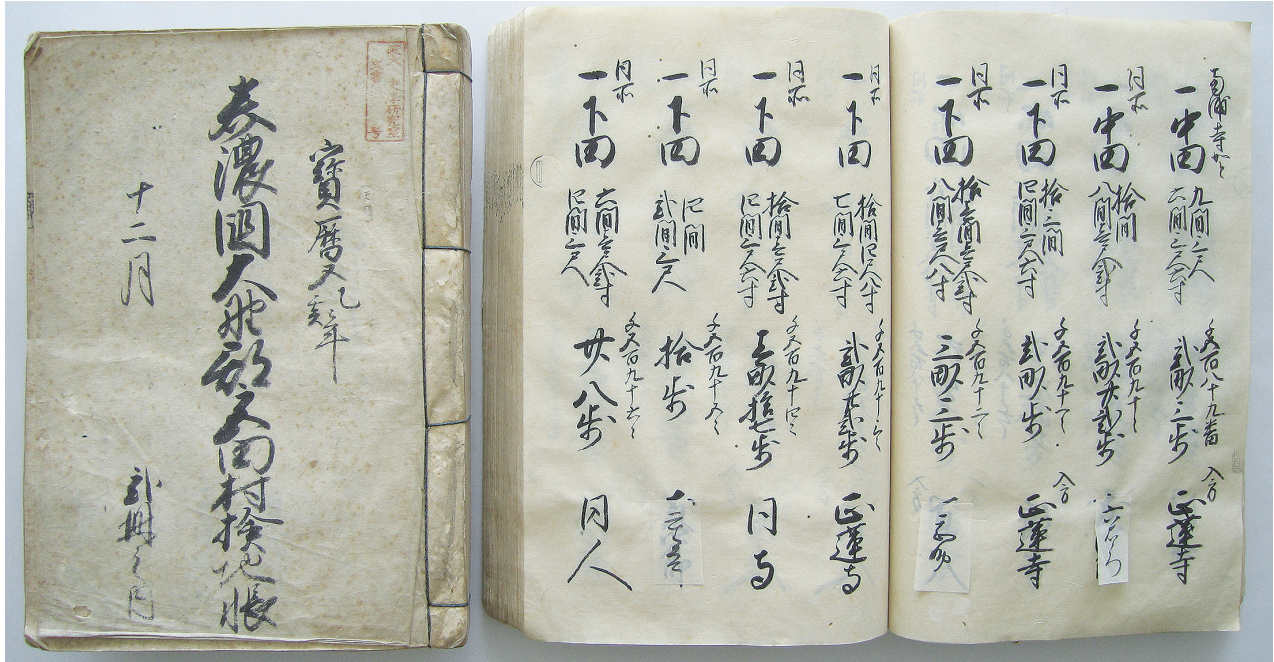 寶暦五乙亥年
美濃國大野郡 田村検地帳
十二月
弐冊之内
一中田 九間三尺 六間三尺六寸 千五百八十九番 弐畝三歩 入方 正蓮寺
同所 一中田 拾間 八間壱尺弐寸 千五百九十〃 弐畝廿弐歩
同所 一下田 拾三間 四間三尺六寸 千五百九十一〃 弐畝歩 入方 正蓮寺
同所 一下田 拾壱間壱尺弐寸 八間壱尺八寸 千五百九十二〃 三畝三歩
同所 一下田 拾間四尺八寸 七間三尺六寸 千五百九十三〃 弐畝廿弐歩 正蓮寺
同所 一下田 拾間壱尺弐寸 四間三尺六寸 千五百九十四〃 壱畝拾七歩 同寺
同所 一下田 四間 弐間三尺 千五百九十五〃 拾歩
同所 一下田 六間壱尺弐寸 四間三尺 千五百九十六〃 廿八歩 同人